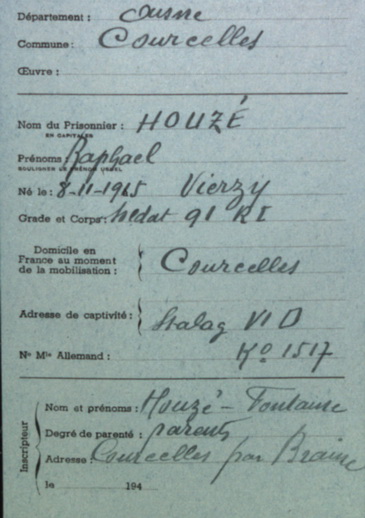 Département : Aisne
Commune : Courcelles
Œuvre :
Nom du Prisonnier : HOUZÉ
EN CAPITALES
Prénoms : Raphael
SOULIGNER LE PRÉNOM USUEL
Né le : 8-11-1915 Vierzy
Grade et Corps : soldat 91 RI
Domicile en
France au moment
de la mobilisation : Courcelles
Adresse de captivité : Stalag VI D
N° Mle Allemand : Ko 1517
Inscripteur
Nom et prénoms : Houzé - Fontaine
Degré de parenté : parents
Adresse : Courcelles par Braine
le 194